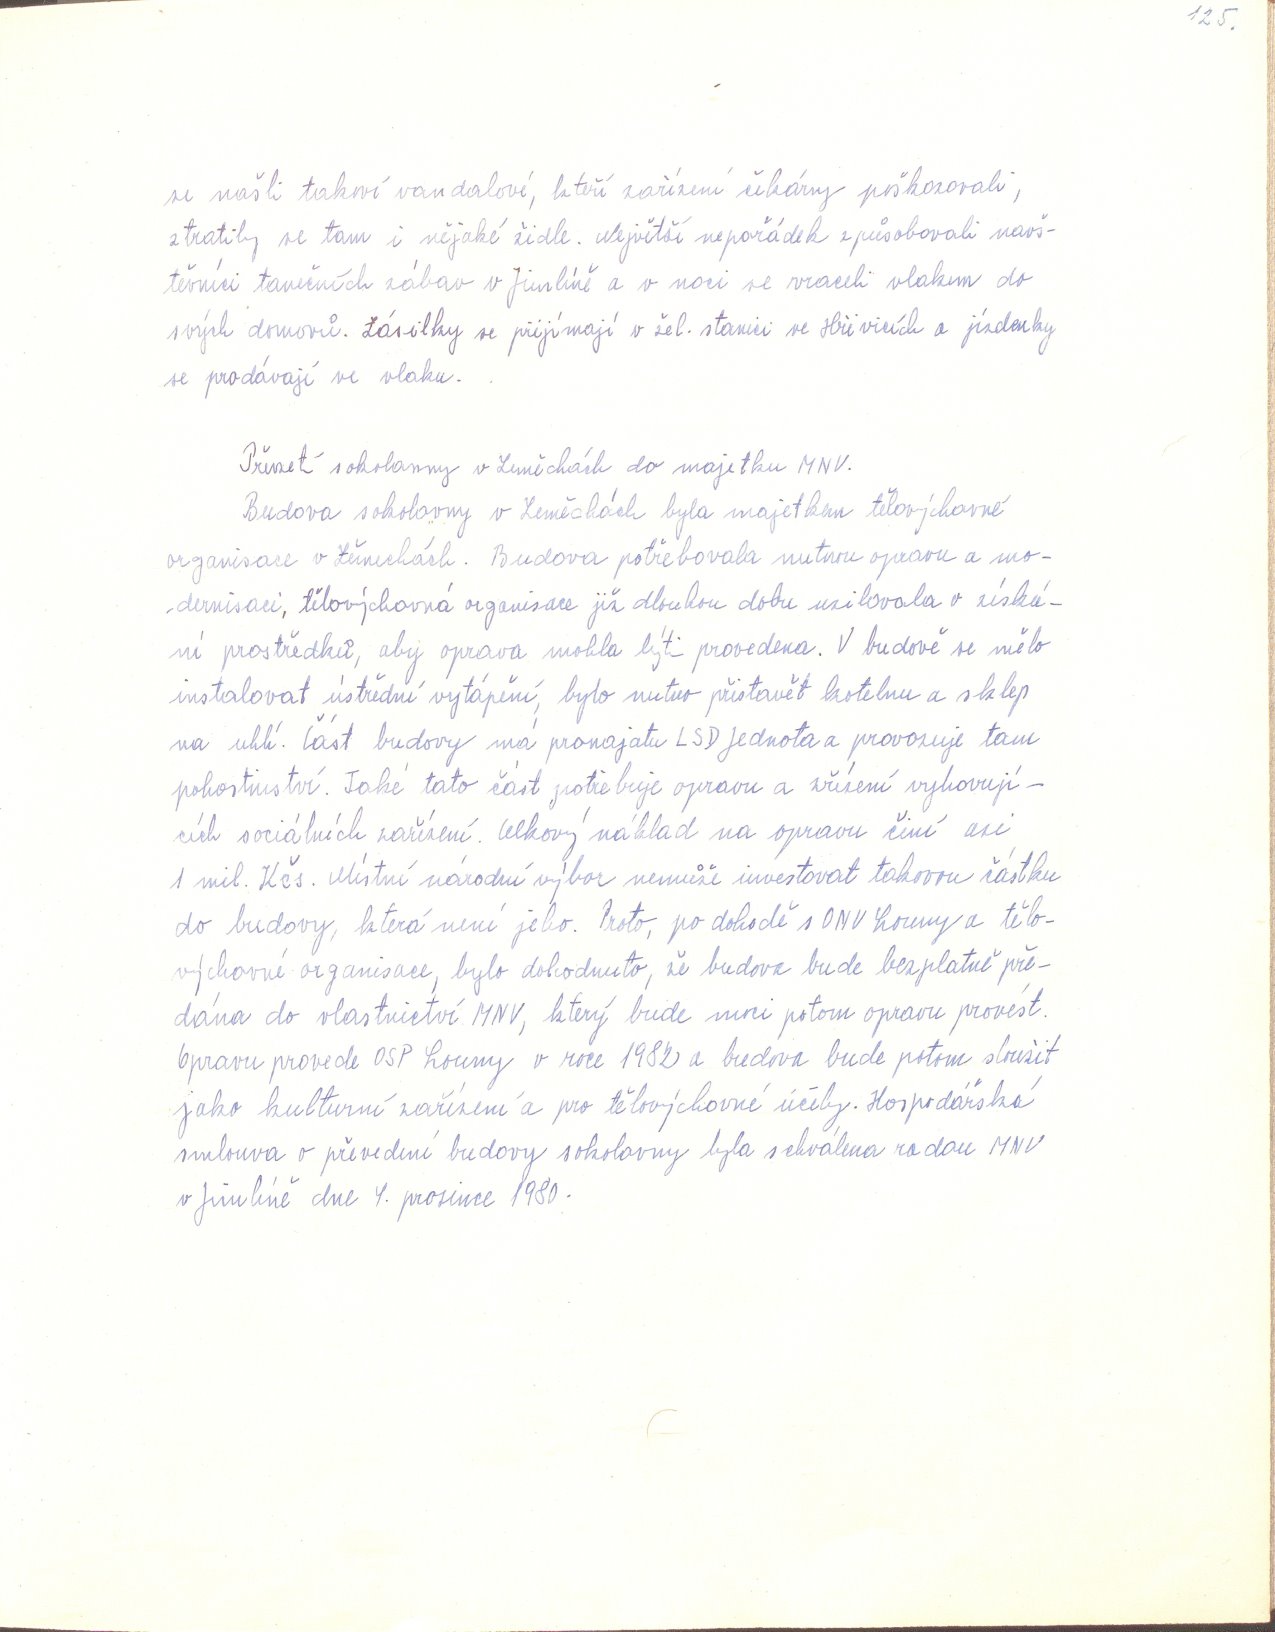 125.
se našli takoví vandalové, kteří zařízení čekárny poškozovali,
ztratily se tam i nějaké židle. Největší nepořádek způsobovali navš-
těvníci tanečních zábav v Jimlíně a v noci se vraceli vlakem do
svých domovů. Zásilky se přijímají v žel. stanici ve Hřivicích a jízdenky
se prodávají ve vlaku.
Převzetí sokolovny v Zeměchách do majetku MNV.
Budova sokolovny v Zeměchách byla majetkem tělovýchovné
organisace v Zěmechách. Budova potřebovala nutnou opravu a mo-
dernisaci, tělovýchovná organisace již dlouhou dobu usilovala o získá-
ní prostředků, aby oprava mohla býti provedena. V budově se mělo
instalovat ústřední vytápění, bylo nutno přistavět kotelnu a sklep
na uhlí. Část budovy má pronajatu LSD Jednota a provozuje tam
pohostinství. Také tato část potřebuje opravu a zřízení vyhovují-
cích sociálních zařízení. Celkový náklad na opravu činí asi
1 mil. Kčs. Místní národní výbor nemůže investovat takovou částku
do budovy, která není jeho. Proto, po dohodě s ONV Louny a tělo-
výchovné organisace, bylo dohodnuto, že budova bude bezplatně pře-
dána do vlastnictví MNV, který bude moci potom opravu provést.
Opravu provede OSP Louny v roce 1982 a budova bude potom sloužit
jako kulturní zařízení a pro tělovýchovné účely. Hospodářská
smlouva o převedení budovy sokolovny byla schválena radou MNV
v Jimlíně dne 4. prosince 1980.